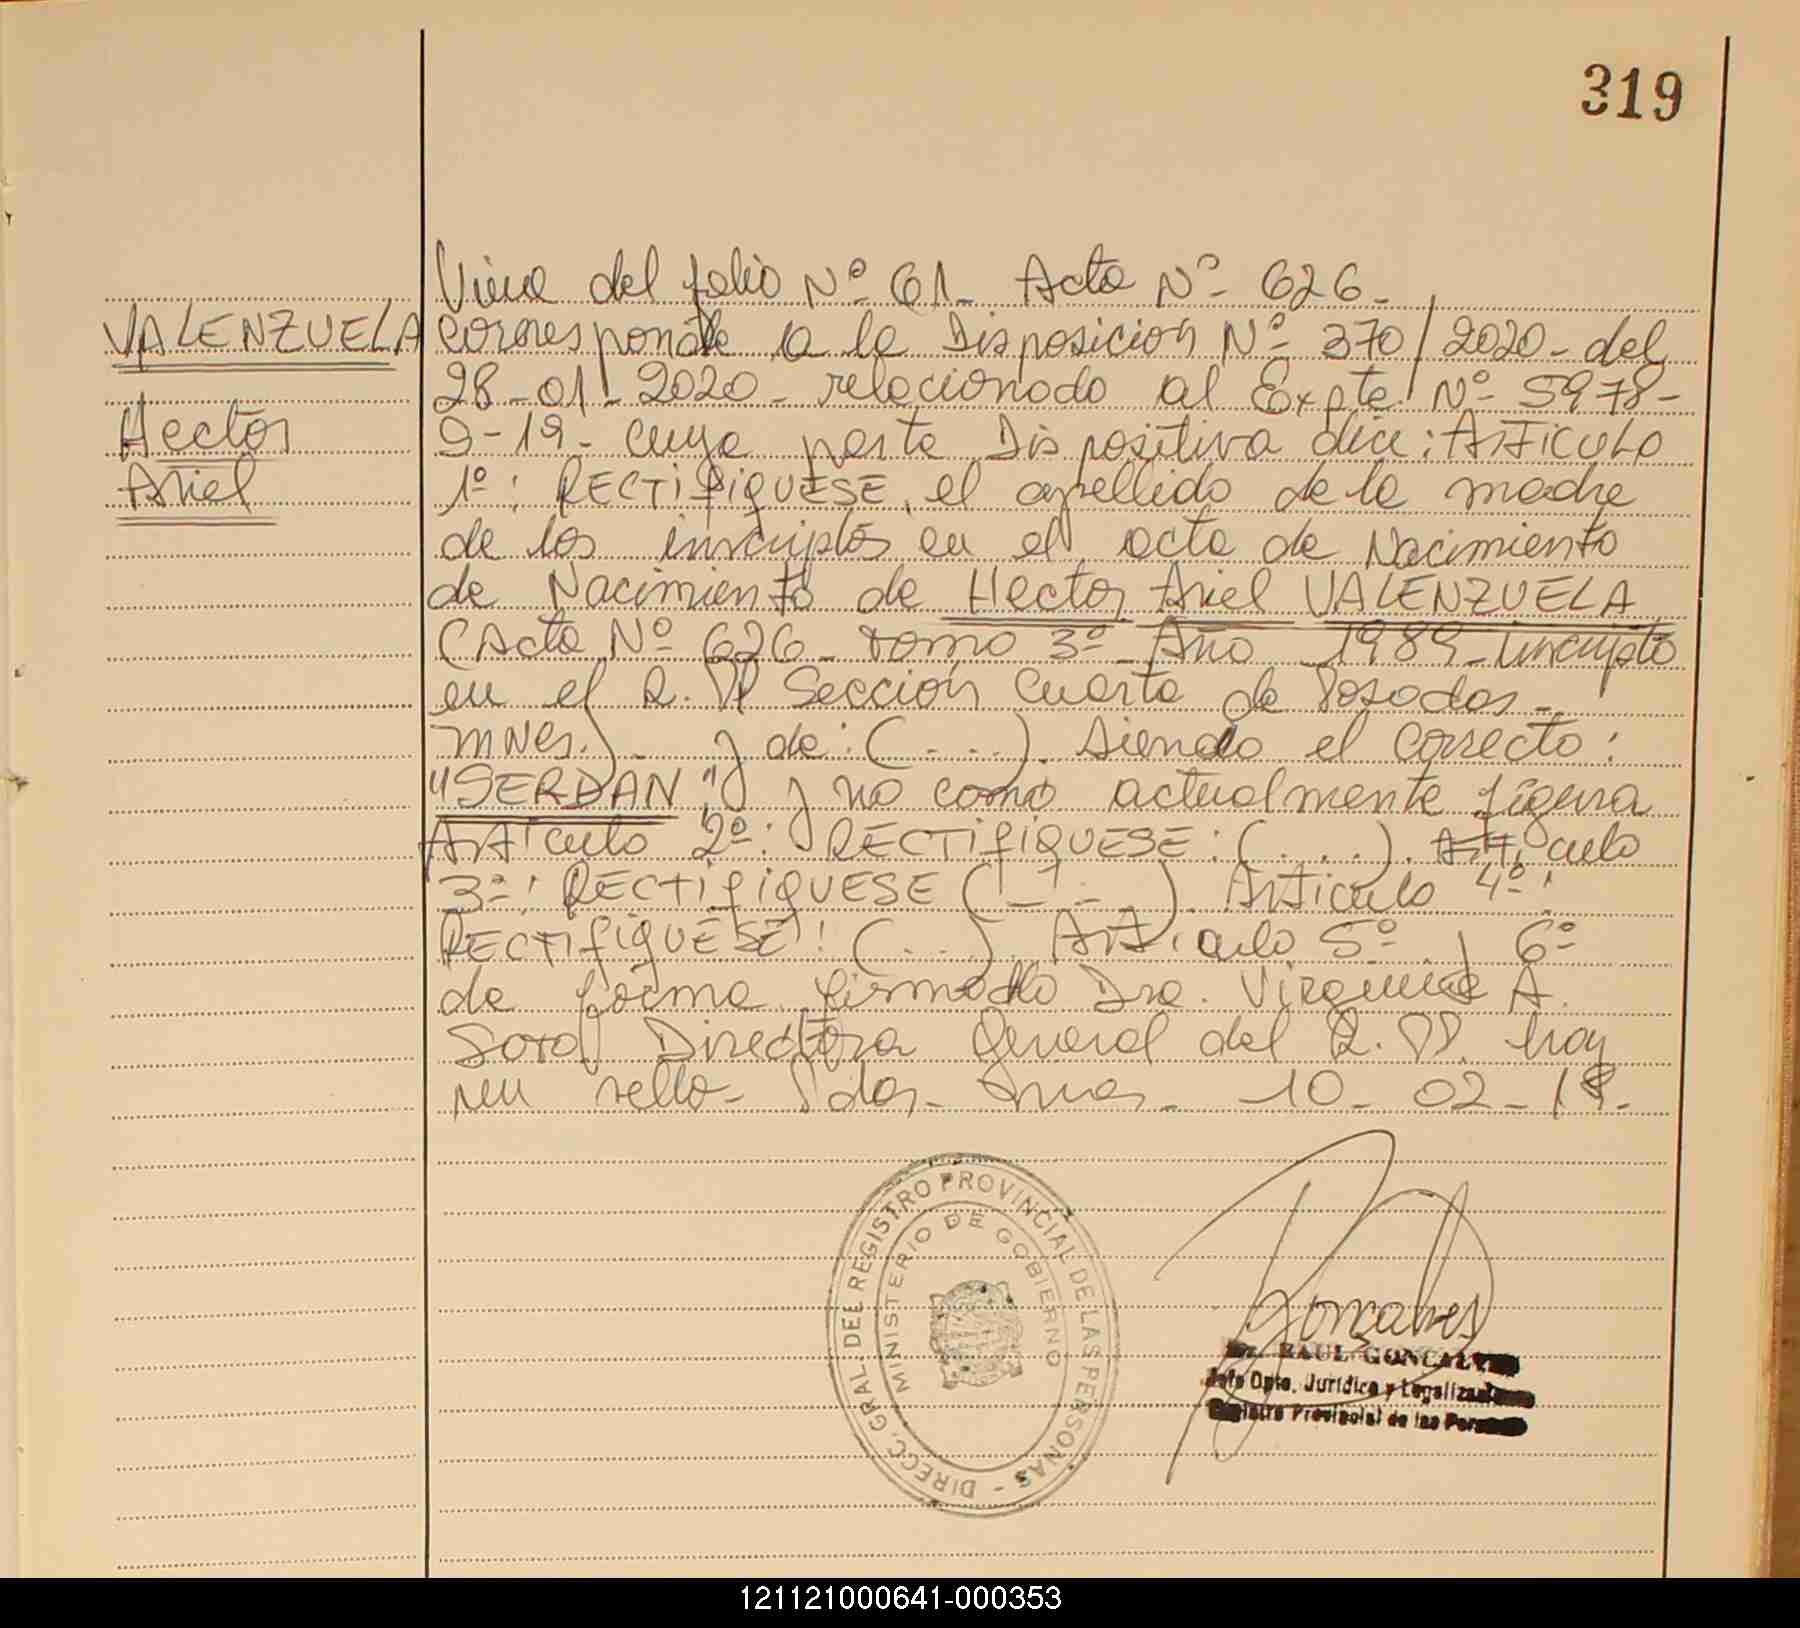 319
Viene del folio Nº 61 - Acta Nº 626 -
VALENZUELA
corresponde a la Disposicion Nº 370/2020 - del
28-01-2020 - relacionado al Expte Nº 5978-
Hector
9-19 - cuya parte Dispositiva dice: ARTICULO
Ariel
1º: RECTIFIQUESE, el apellido de la madre
de los inscriptos en el acta de Nacimiento
de Nacimiento de Hector Ariel VALENZUELA
(Acta Nº 626 - tomo 3º - Año 1989 - Inscripto
en el R.PP Seccion Cuarta de Posadas -
MNes.) - y de: (....). Siendo el correcto:
"SERDAN", y no como actualmente figura
Articulo 2º: RECTIFIQUESE: (....). Articulo
3º: RECTIFIQUESE (- - -). Articulo 4º:
RECTIFIQUESE: (...). Articulo 5º y 6º
de forma. firmado Dra. Virginia A.
Directora General del R.PP. hay
un sello - Pdas - Mnes - 10-02-
DIRECC. GRAL. DEL REGISTRO PROVINCIAL DE LAS PERSONAS -
MINISTERIO DE GOBIERNO
Goncalves
RAUL GONCALVES
Jefe Dpto. Jurídico y Legalizac
Registro Provincial de las Personas
121121000641-000353